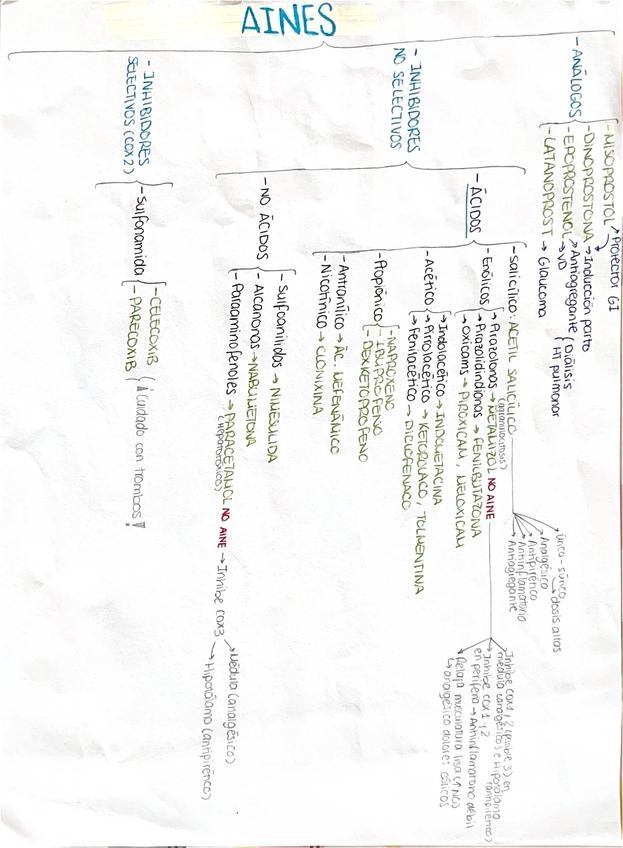 AINES
- ANÁLOGOS
- MISOPROSTOL → Protector GI
- DINOPROSTONA → Inducción parto
- EPOPROSTENOL → Antiagregante
→ VD
Diálisis
HT pulmonar
- LATANOPROST → Glaucoma
- INHIBIDORES
NO SELECTIVOS
- ÁCIDOS
- Salicílico: ACETIL SALICÍLICO
Único - súnico
→ dosis altas
Analgésico
Antipirético
Antiinflamatorio
Antiagregante
- Enólicos
→ Pirazolonas → METAMIZOL NO AINE
(agranulocitosis)
Inhibe cox 1 y 2 (posible 3) en
médula (analgésico) e Hipotálamo
(antipirético)
Inhibe cox 1 y 2
en periferia → Antiinflamatorio débil
Relaja musculatura lisa (↑ NO)
↳ analgésico dolores cólicos
→ Pirazolidindionas → FENILBUTAZONA
→ Oxicams → PIROXICAM, MELOXICAM
- Acético
→ Indolacético → INDOMETACINA
→ Pirrolacético → KETOROLACO, TOLMENTINA
→ Fenilacético → DICLOFENACO
- Propiónico
- NAPROXENO
- IBUPROFENO
- DEXKETOPROFENO
- Antranílico → ÁC. MEFENÁMICO
- Nicotínico → CLONIXINA
- NO ÁCIDOS
- Sulfoanilidas → NIMESULIDA
- Alcanonas → NABUMETONA
- Paraaminofenoles → PARACETAMOL NO AINE → Inhibe cox3
(Hepatotóxico)
→ Médula (analgésico)
→ Hipotálamo (antipirético)
- INHIBIDORES
SELECTIVOS (COX2)
- Sulfonamida
- CELECOXIB
- PARECOXIB
¡Cuidado con trombos!